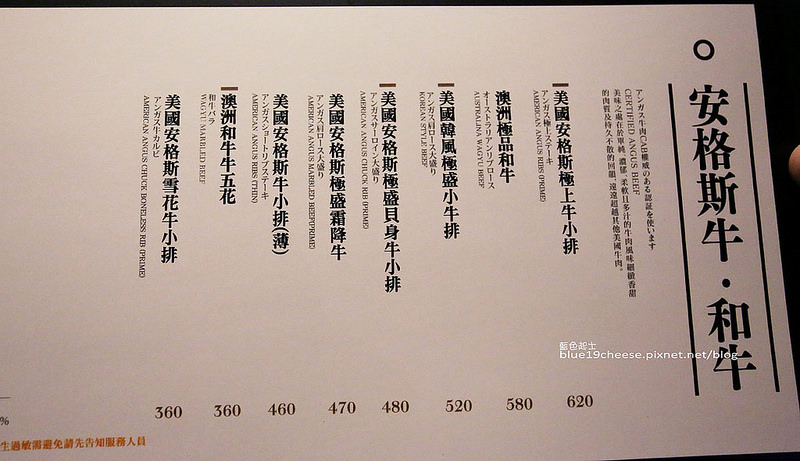 安格斯牛・和牛
アンガス牛肉CAB權威のある認証を使います
CERTIFIED ANGUS BEEF
美味之處在於單純,濃郁、柔軟且多汁的牛肉風味細緻香甜
的肉質及持久不散的回韻,遠遠超越其他美國牛肉。
美國安格斯極上牛小排
アンガス極上ステーキ
AMERICAN ANGUS RIBS (PRIME)
620
澳洲極品和牛
オーストラリアンリブロース
AUSTRALIAN WAGYU BEEF
580
美國韓風極盛小牛排
アンガス肩ロース大盛り
KOREAN STYLE BEEF
520
美國安格斯極盛貝身牛小排
アンガスサーロイン大盛り
AMERICAN ANGUS CHUCK RIB (PRIME)
480
美國安格斯極盛霜降牛
アンガス肩ロース大盛り
AMERICAN ANGUS MARBLED BEEF(PRIME)
470
美國安格斯牛小排(薄)
アンガスショートリブステーキ
AMERICAN ANGUS RIBS (THIN)
460
澳洲和牛牛五花
和牛バラ
WAGYU MARBLED BEEF
360
美國安格斯雪花牛小排
アンガス牛カルビ
AMERICAN ANGUS CHUCK BONELESS RIB (PRIME)
360
%
生過敏需避免請先告知服務人員
藍色起士
blue19cheese.pixnet.net/blog